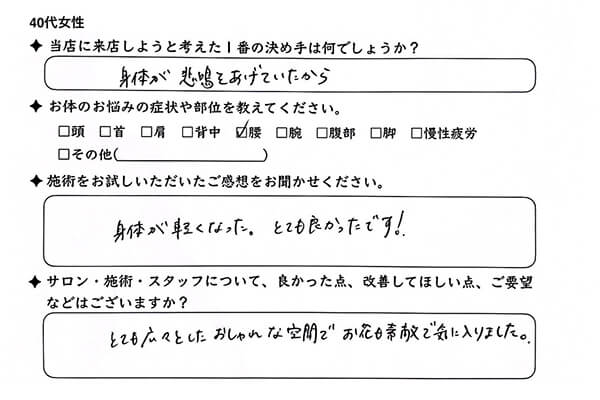 40代女性
✦ 当店に来店しようと考えた1番の決め手は何でしょうか？
身体が 悲鳴をあげていたから
✦ お体のお悩みの症状や部位を教えてください。
□頭 □首 □肩 □背中 ☑腰 □腕 □腹部 □脚 □慢性疲労
□その他(　　　　　　　　　　)
✦ 施術をお試しいただいたご感想をお聞かせください。
身体が軽くなった。とても良かったです!
✦ サロン・施術・スタッフについて、良かった点、改善してほしい点、ご要望
などはございますか？
とても広々とした おしゃれな空間で お花も素敵で気に入りました。